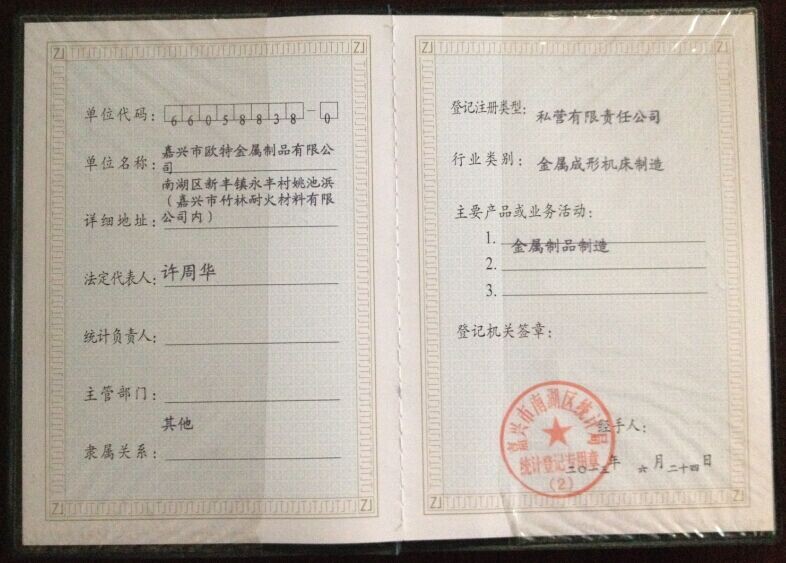 单位代码: 66058838-0
单位名称: 嘉兴市欧特金属制品有限公
司
南湖区新丰镇永丰村姚池浜
(嘉兴市竹林耐火材料有限
详细地址: 公司内)
法定代表人: 许周华
统计负责人:
主管部门:
其他
隶属关系:
登记注册类型: 私营有限责任公司
行业类别: 金属成形机床制造
主要产品或业务活动:
1. 金属制品制造
2.
3.
登记机关签章:
嘉兴市南湖区统计局
统计登记专用章
(2)
经手人:
二〇一三年 六月二十四日
ZJ
ZJ
ZJ
ZJ
ZJ
ZJ
ZJ
ZJ